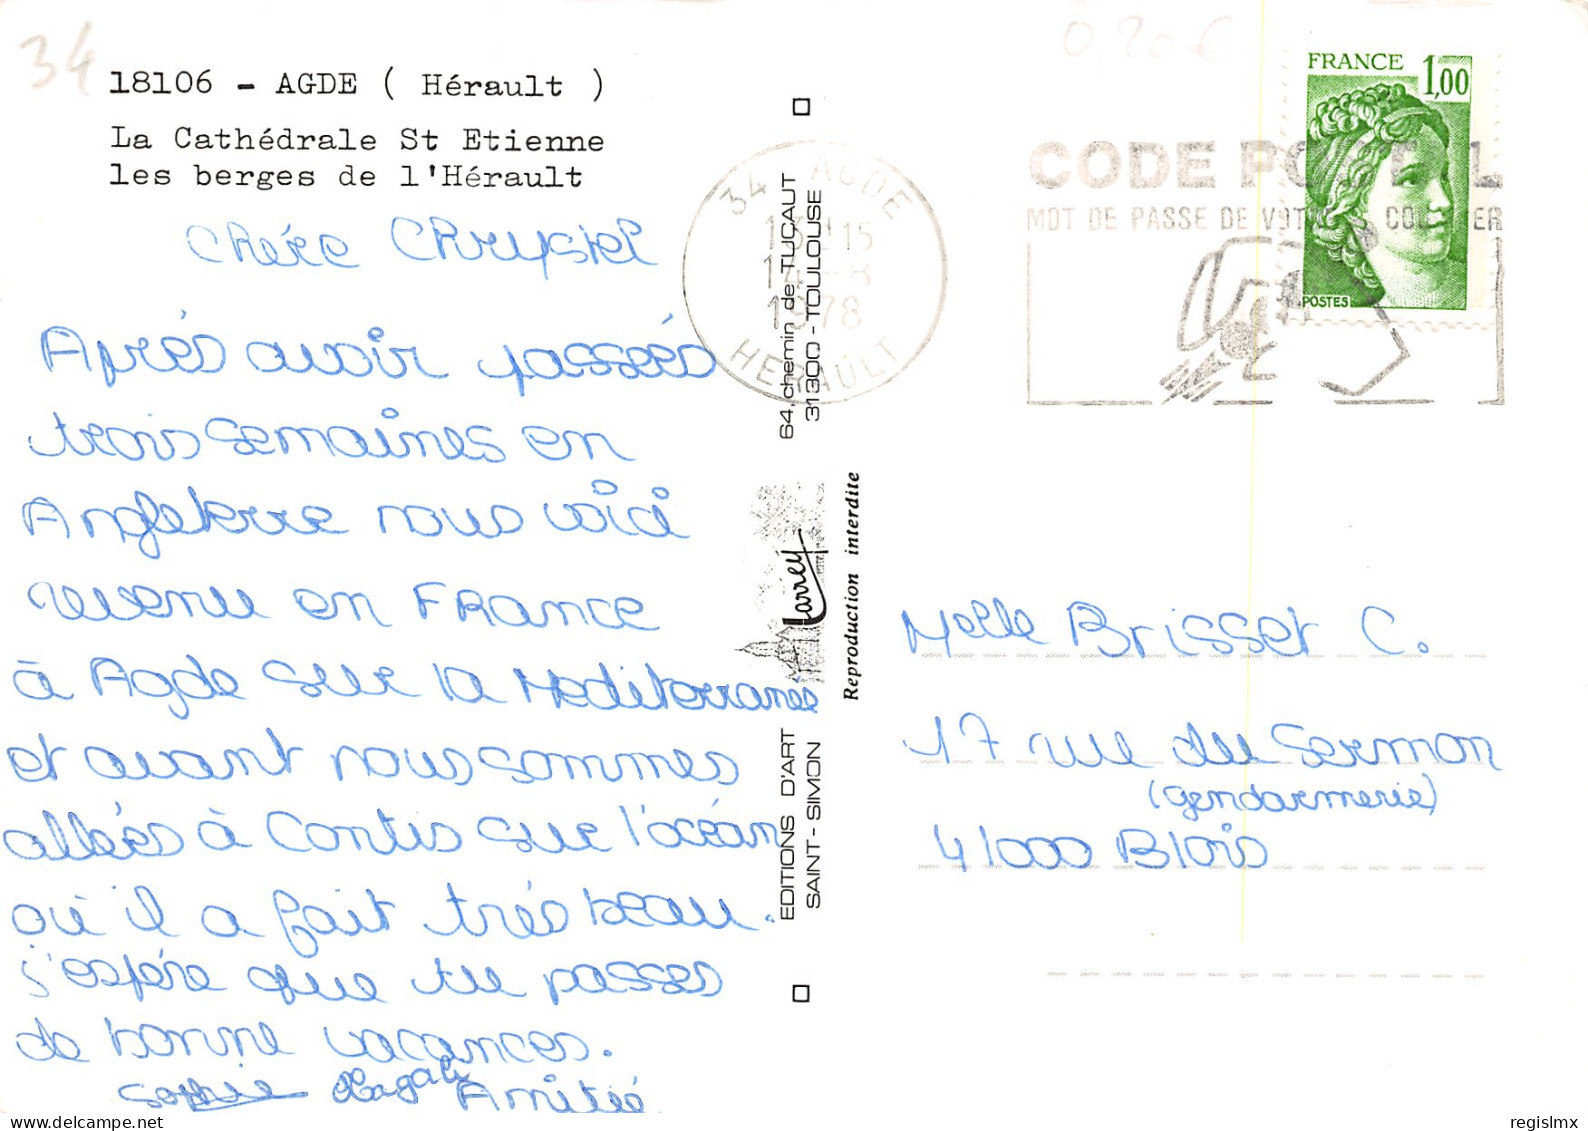 34
0,20€
18106 - AGDE ( Hérault )
La Cathédrale St Etienne
les berges de l'Hérault
Chére Chrystel
Aprés avoir passées
trois semaines en
Angleterre nous voici
revenu en FRANCE
à Agde sur la Mediterranée
et avant nous sommes
allées à Contis sur l'océan
où il a fait trés beau.
j'espére que tu passes
de bonne vacances.
Sophie Magali
Amitié
34 AGDE
13H15
14-8
1978
HERAULT
64, chemin de TUCAUT
31300 - TOULOUSE
Larrey
Reproduction interdite
EDITIONS D'ART
SAINT-SIMON
FRANCE 1,00
POSTES
CODE POSTAL
MOT DE PASSE DE VOTRE COURRIER
Melle Brisset C.
17 rue du Sermon
(gendarmerie)
41000 Blois
regislmx